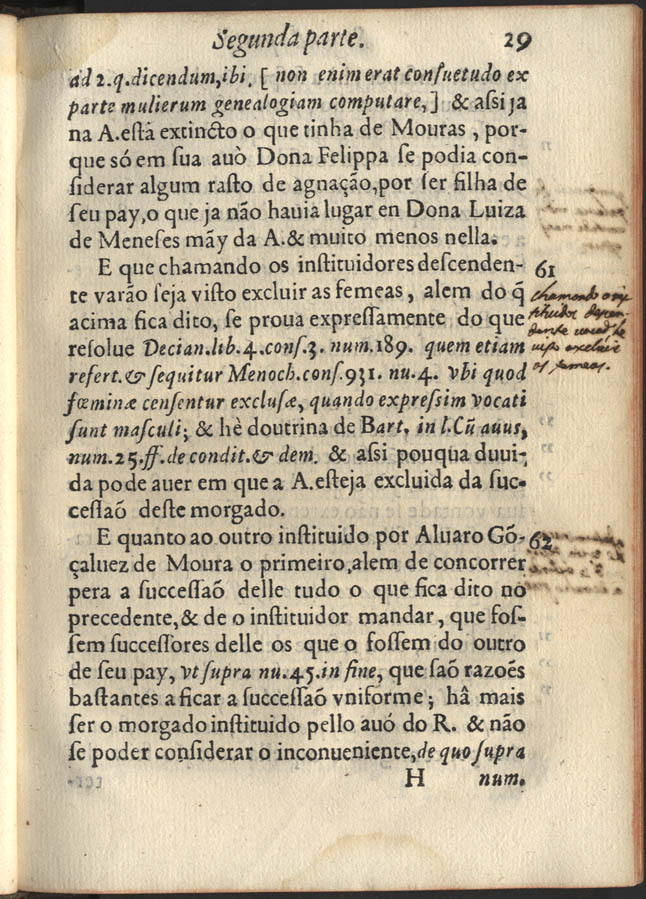 Segunda parte. 29
ad 2.q.dicendum,ibi, [ non enim erat consuetudo ex
parte mulierum genealogiam computare, ] & aſsi ja
na A.eſtà extincto o que tinha de Mouras , por-
que só em ſua auò Dona Felippa ſe podia con-
ſiderar algum raſto de agnação,por ſer filha de
ſeu pay,o que ja não hauia lugar en Dona Luiza
de Meneſes mãy da A.& muito menos nella.
E que chamando os inſtituidores deſcenden- 61
te varão ſeja viſto excluir as femeas, alem do q̃
acima fica dito, ſe proua expreſſamente do que
reſolue Decian.lib.4.conſ.3. num.189. quem etiam
refert.& ſequitur Menoch.conſ.931. nu.4. vbi quod
fœminæ cenſentur excluſæ, quando expreſſim vocati
ſunt maſculi; & hè doutrina de Bart. in l.Cũ auus,
num.25.ff.de condit.& dem. & aſsi pouqua duui-
da pode auer em que a A.eſteja excluida da ſuc-
ceſſaõ deſte morgado.
E quanto ao outro inſtituido por Aluaro Gõ- 62
çaluez de Moura o primeiro,alem de concorrer
pera a ſucceſſaõ delle tudo o que fica dito no
precedente,& de o inſtituidor mandar, que foſ-
ſem ſucceſſores delle os que o foſſem do outro
de ſeu pay, vt ſupra nu.45.in fine, que ſaõ razoẽs
baſtantes a ficar a ſucceſſaõ vniforme; hâ mais
ſer o morgado inſtituido pello auó do R. & não
ſe poder conſiderar o inconueniente,de quo ſupra
H num.
chamando o
excluir
as femeas.